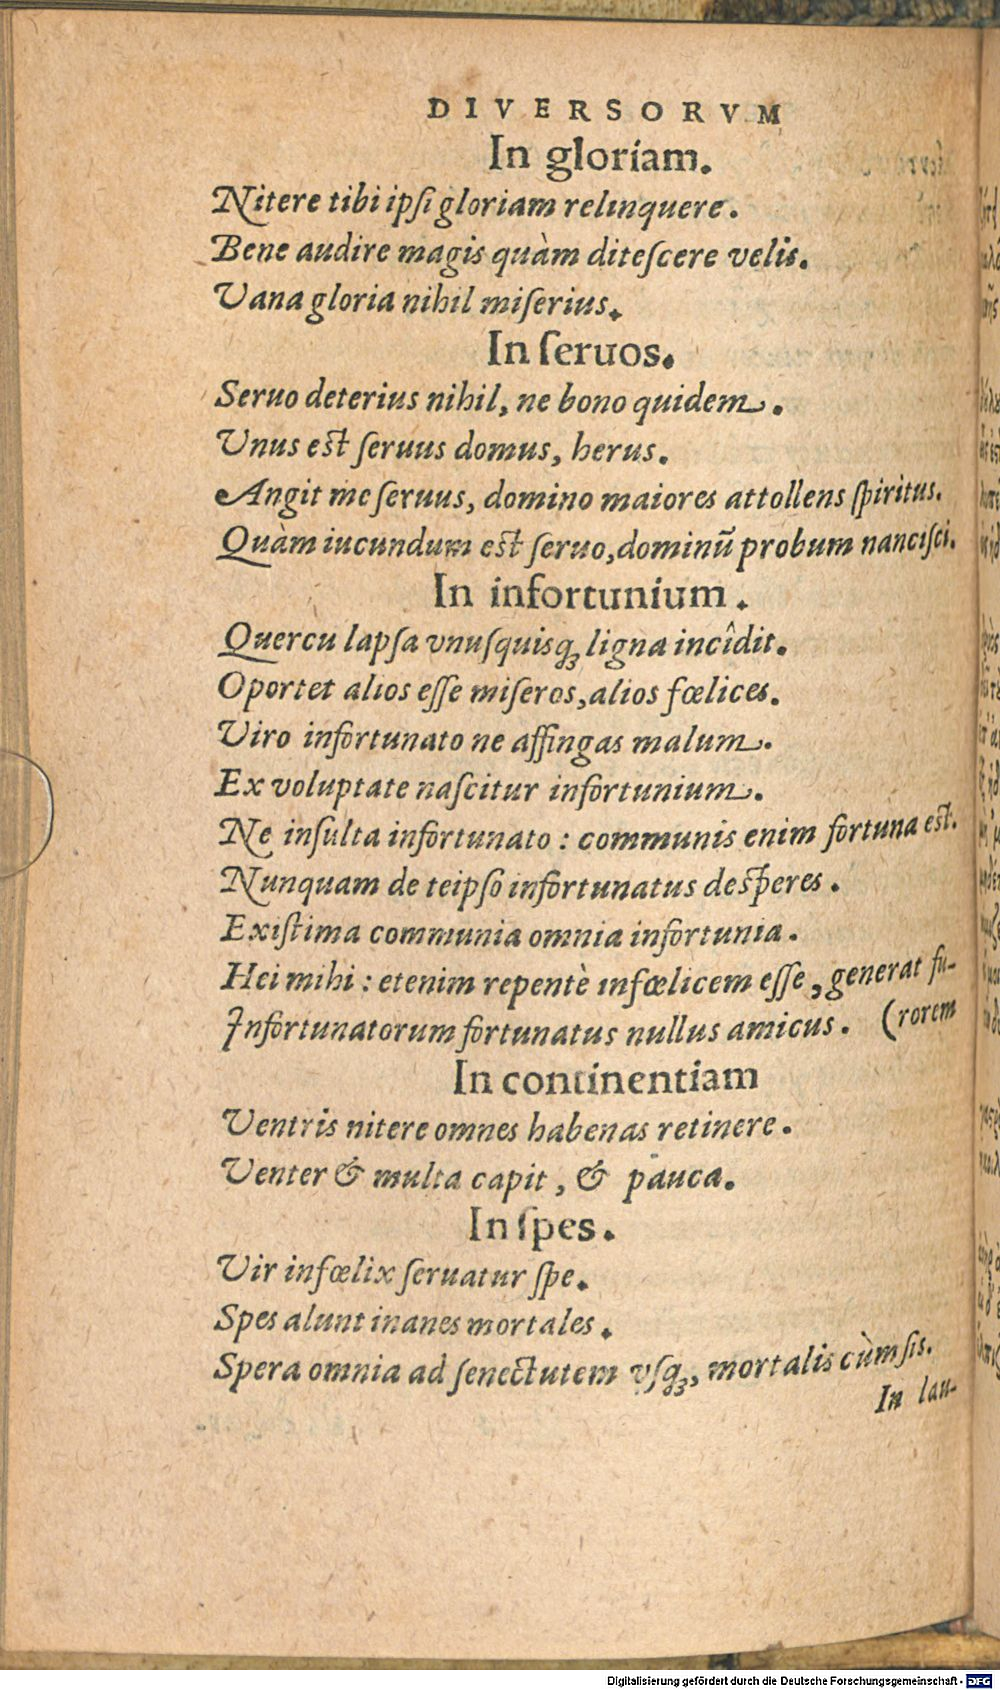 DIVERSORVM
In gloriam.
Nitere tibi ipſi gloriam relinquere.
Bene audire magis quàm diteſcere velis.
Vana gloria nihil miſerius.
In ſeruos.
Seruo deterius nihil, ne bono quidem.
Vnus eſt ſeruus domus, herus.
Angit me ſeruus, domino maiores attollens ſpiritus.
Quàm iucundum eſt ſeruo, dominū probum nanciſci.
In infortunium.
Quercu lapſa vnuſquisqꝫ ligna incîdit.
Oportet alios eſſe miſeros, alios fœlices.
Viro infortunato ne affingas malum.
Ex voluptate naſcitur infortunium.
Ne inſulta infortunato: communis enim fortuna eſt.
Nunquam de teipſo infortunatus deſperes.
Exiſtima communia omnia infortunia.
Hei mihi: etenim repentè infœlicem eſſe, generat fu-
Infortunatorum fortunatus nullus amicus. (rorem
In continentiam
Ventris nitere omnes habenas retinere.
Venter & multa capit, & pauca.
In ſpes.
Vir infœlix ſeruatur ſpe.
Spes alunt inanes mortales.
Spera omnia ad ſenectutem vſqꝫ, mortalis cùm ſis.
In lau-
Digitalisierung gefördert durch die Deutsche Forschungsgemeinschaft - DFG